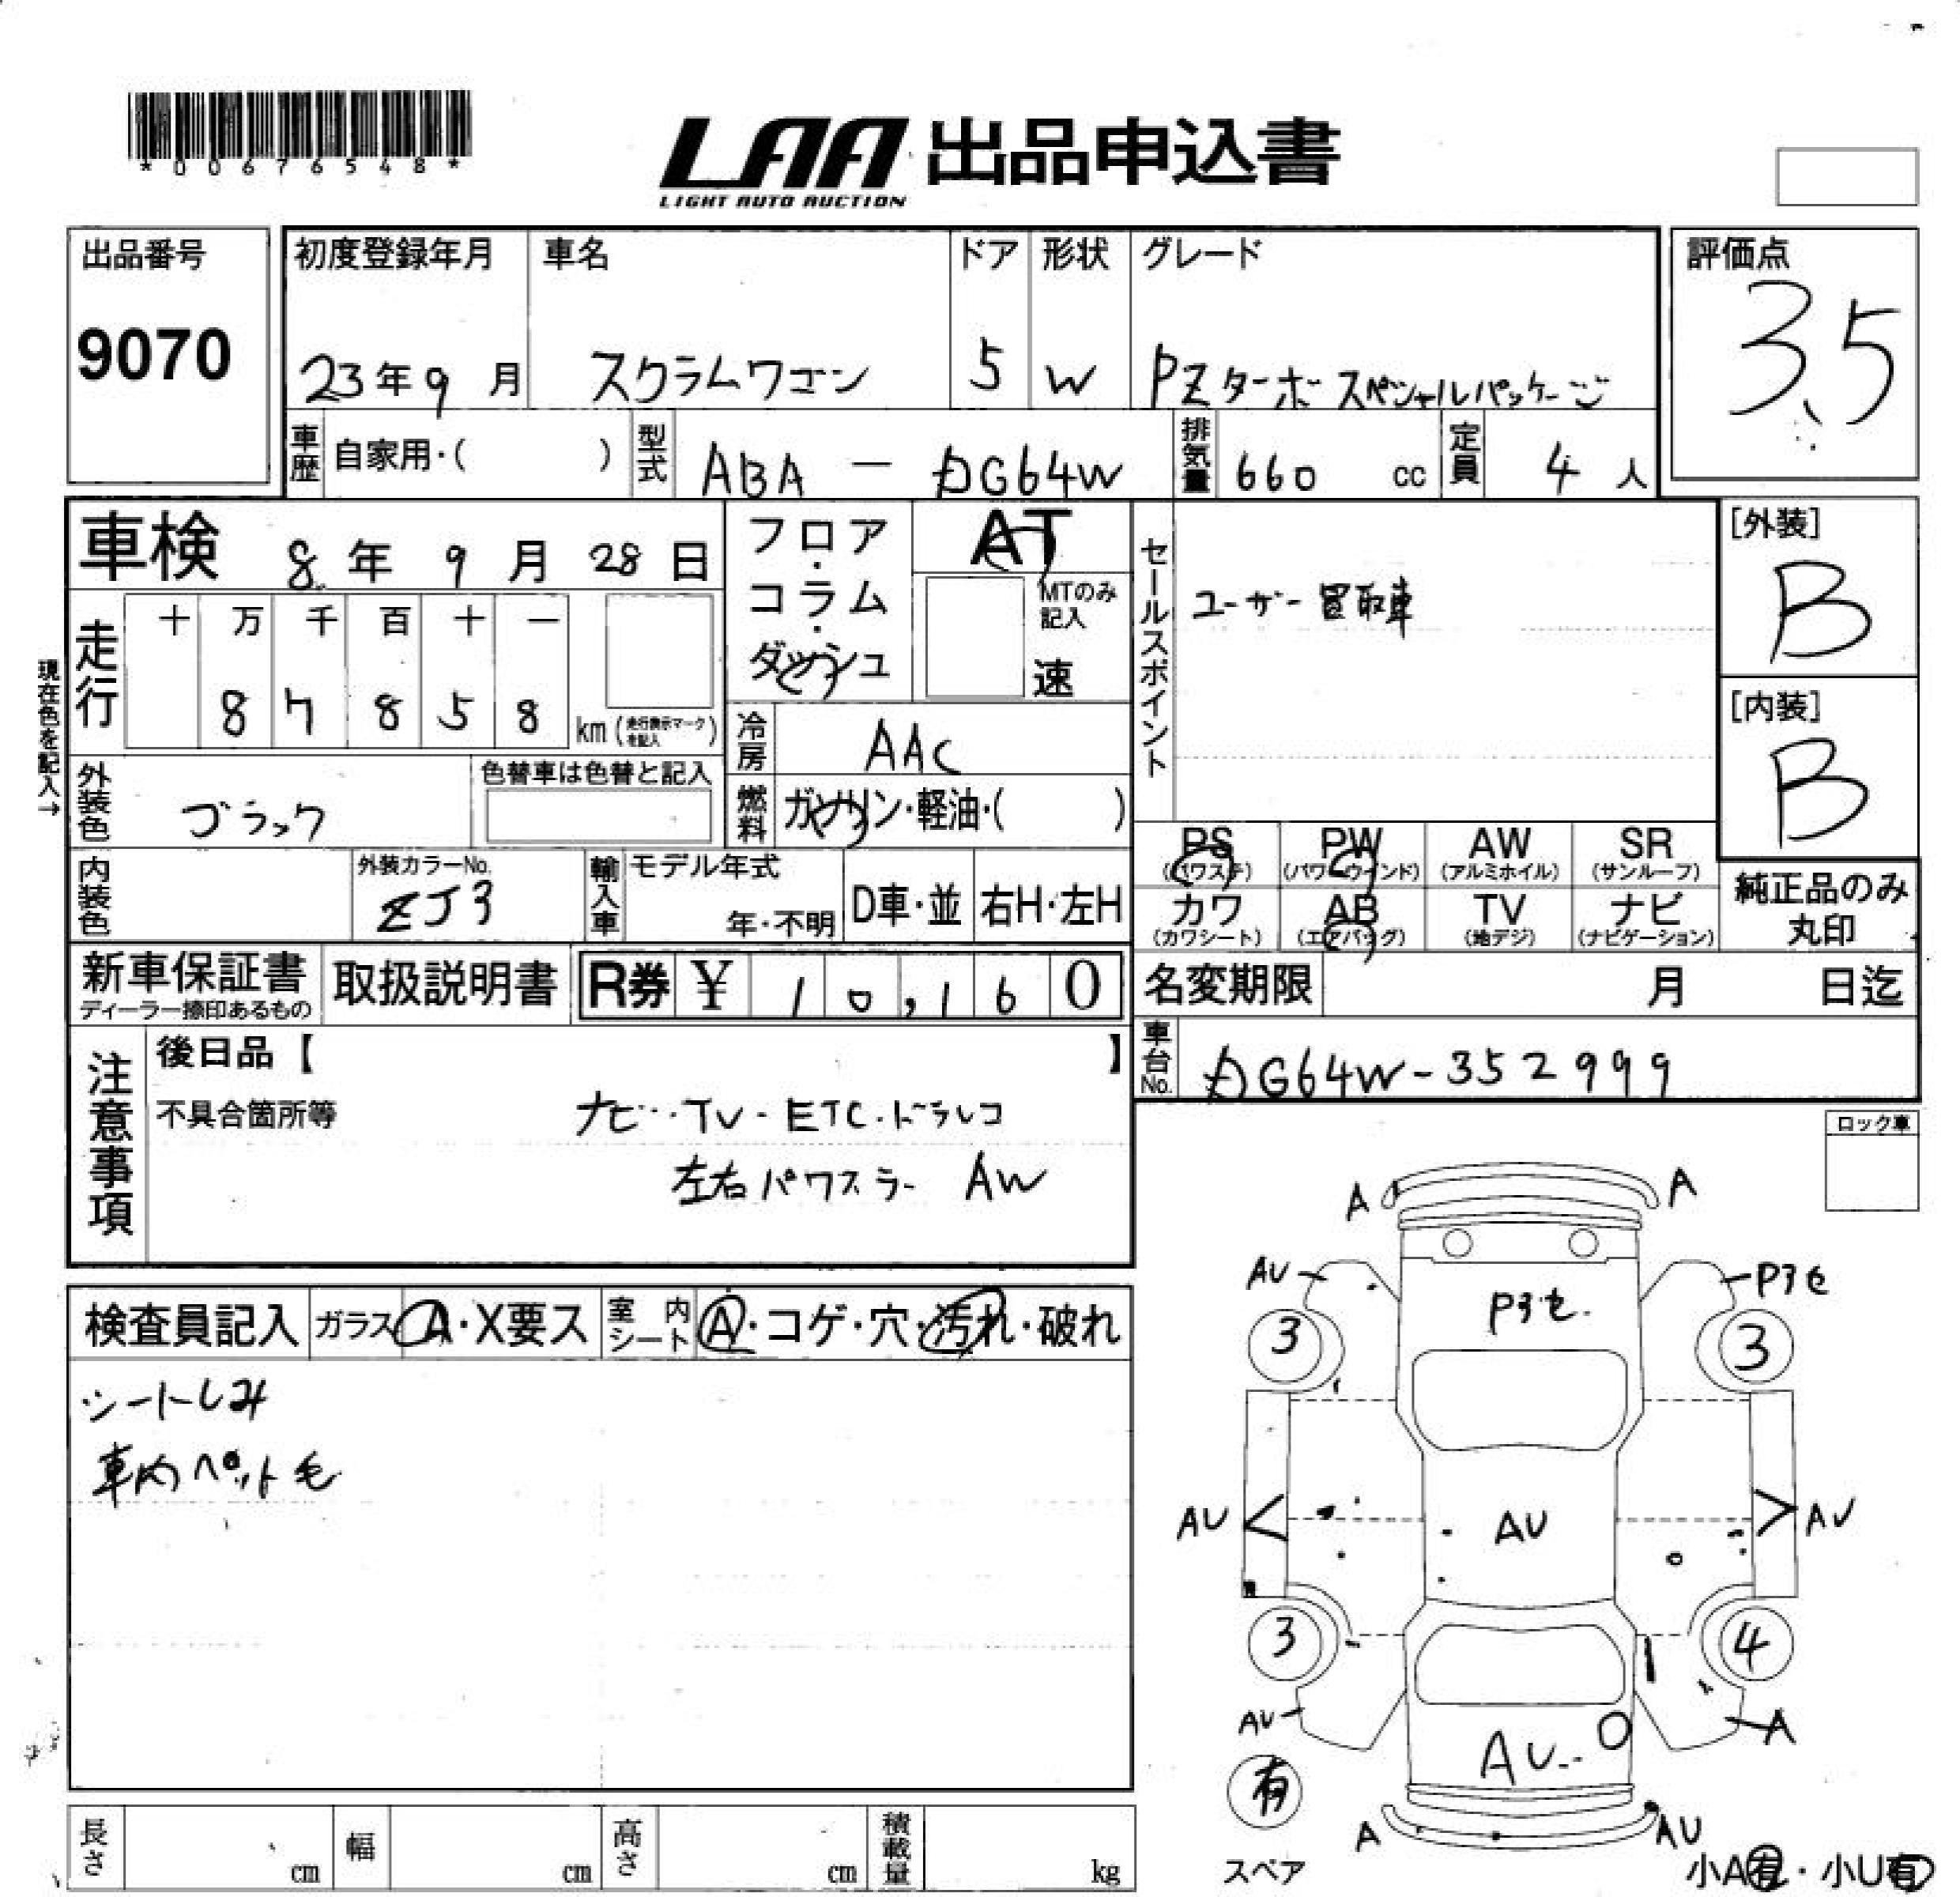 *00676548*
LAA 出品申込書
LIGHT AUTO AUCTION
出品番号
9070
初度登録年月
23年9月
車名
スクラムワゴン
ドア
5
形状
W
グレード
PZターボ スペシャルパッケージ
評価点
3.5
車歴 自家用・( )
型式 ABA - DG64W
排気量 660 cc
定員 4 人
車検 8年 9月 28日
フロア・コラム・ダッシュ
AT
MTのみ記入
速
セールスポイント
ユーザー買取車
[外装]
B
[内装]
B
現在色を記入→
走行
十 万 千 百 十 一
8 7 8 5 8 km (走行表示マークを記入)
冷房 AAC
燃料 ガソリン・軽油・( )
外装色 ブラック
色替車は色替と記入
内装色
外装カラーNo.
ZJ3
輸入車 モデル年式
年・不明
D車・並
右H・左H
PS (パワステ)
PW (パワーウインド)
AW (アルミホイル)
SR (サンルーフ)
カワ (カワシート)
AB (エアバッグ)
TV (地デジ)
ナビ (ナビゲーション)
純正品のみ丸印
新車保証書
ディーラー捺印あるもの
取扱説明書
R券 ¥ 10,160
名変期限 月 日迄
車台No. DG64W-352999
注意事項
後日品【 】
不具合箇所等
ナビ・TV・ETC・ドラレコ
左右パワスラ- AW
ロック車
検査員記入
ガラス A・X要ス
室内シート A・コゲ・穴・汚れ・破れ
シートしみ
車内ペット毛
A A
AU P3セ P3セ
3 3
AU AU AU
3 4
AU AU A
有
スペア
A AU
小A有・小U有
長さ cm
幅 cm
高さ cm
積載量 kg